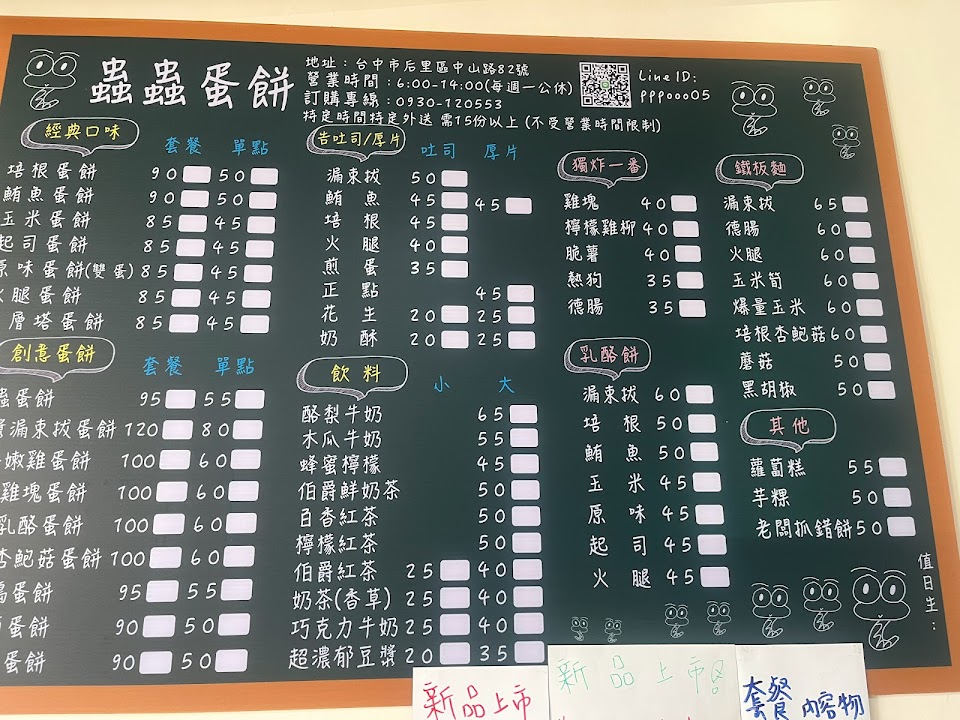 蟲蟲蛋餅
地址：台中市后里區中山路82號
營業時間：6:00-14:00(每週一公休)
訂購專線：0930-120553
特定時間特定外送 需15份以上 (不受營業時間限制)
Line ID:
pppooo05
經典口味 套餐 單點
培根蛋餅 90 50
鮪魚蛋餅 90 50
玉米蛋餅 85 45
起司蛋餅 85 45
原味蛋餅(雙蛋) 85 45
火腿蛋餅 85 45
層塔蛋餅 85 45
創意蛋餅 套餐 單點
蟲蛋餅 95 55
漏束拔蛋餅 120 80
嫩雞蛋餅 100 60
雞塊蛋餅 100 60
乳酪蛋餅 100 60
杏鮑菇蛋餅 100 60
蛋餅 95 55
蛋餅 90 50
蛋餅 90 50
吉吐司/厚片 吐司 厚片
漏束拔 50
鮪魚 45 45
培根 45
火腿 40
煎蛋 35
正點 45
花生 20 25
奶酥 20 25
飲料 小 大
酪梨牛奶 65
木瓜牛奶 55
蜂蜜檸檬 45
伯爵鮮奶茶 50
百香紅茶 50
檸檬紅茶 50
伯爵紅茶 25 40
奶茶(香草) 25 40
巧克力牛奶 25 40
超濃郁豆漿 20 35
獨炸一番
雞塊 40
檸檬雞柳 40
脆薯 40
熱狗 35
德腸 35
乳酪餅
漏束拔 60
培根 50
鮪魚 50
玉米 45
原味 45
起司 45
火腿 45
鐵板麵
漏束拔 65
德腸 60
火腿 60
玉米筍 60
爆量玉米 60
培根杏鮑菇 60
蘑菇 50
黑胡椒 50
其他
蘿蔔糕 55
芋粿 50
老闆抓錯餅 50
值日生：
新品上市
新品上市
套餐 內容物